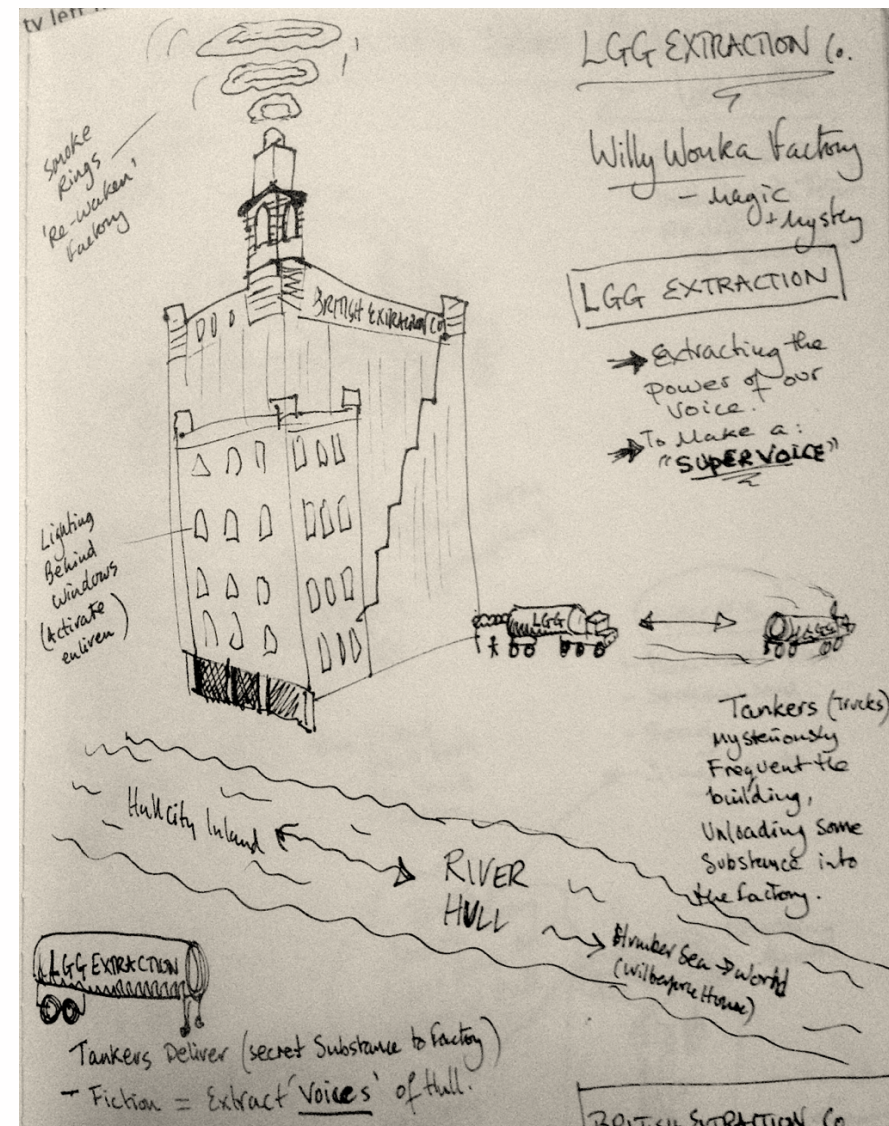 tv left
LGG EXTRACTION Co.
Willy Wonka Factory
- Magic
+ Mystery
LGG EXTRACTION
Extracting the
power of our
voice.
To Make a:
"SUPERVOICE"
Smoke
Rings
'Re-waken'
Factory
BRITISH EXTRACTION Co
Lighting
Behind
windows
(Activate
enliven)
LGG
LGG
Tankers (Trucks)
Mysteriously
Frequent the
building,
Unloading Some
Substance into
the factory.
Hull City Inland
RIVER
HULL
Humber Sea → World
(Wilberforce House)
LGG EXTRACTION
Tankers Deliver (secret Substance to Factory)
- Fiction = Extract 'Voices' of Hull.
BRITISH EXTRACTION Co